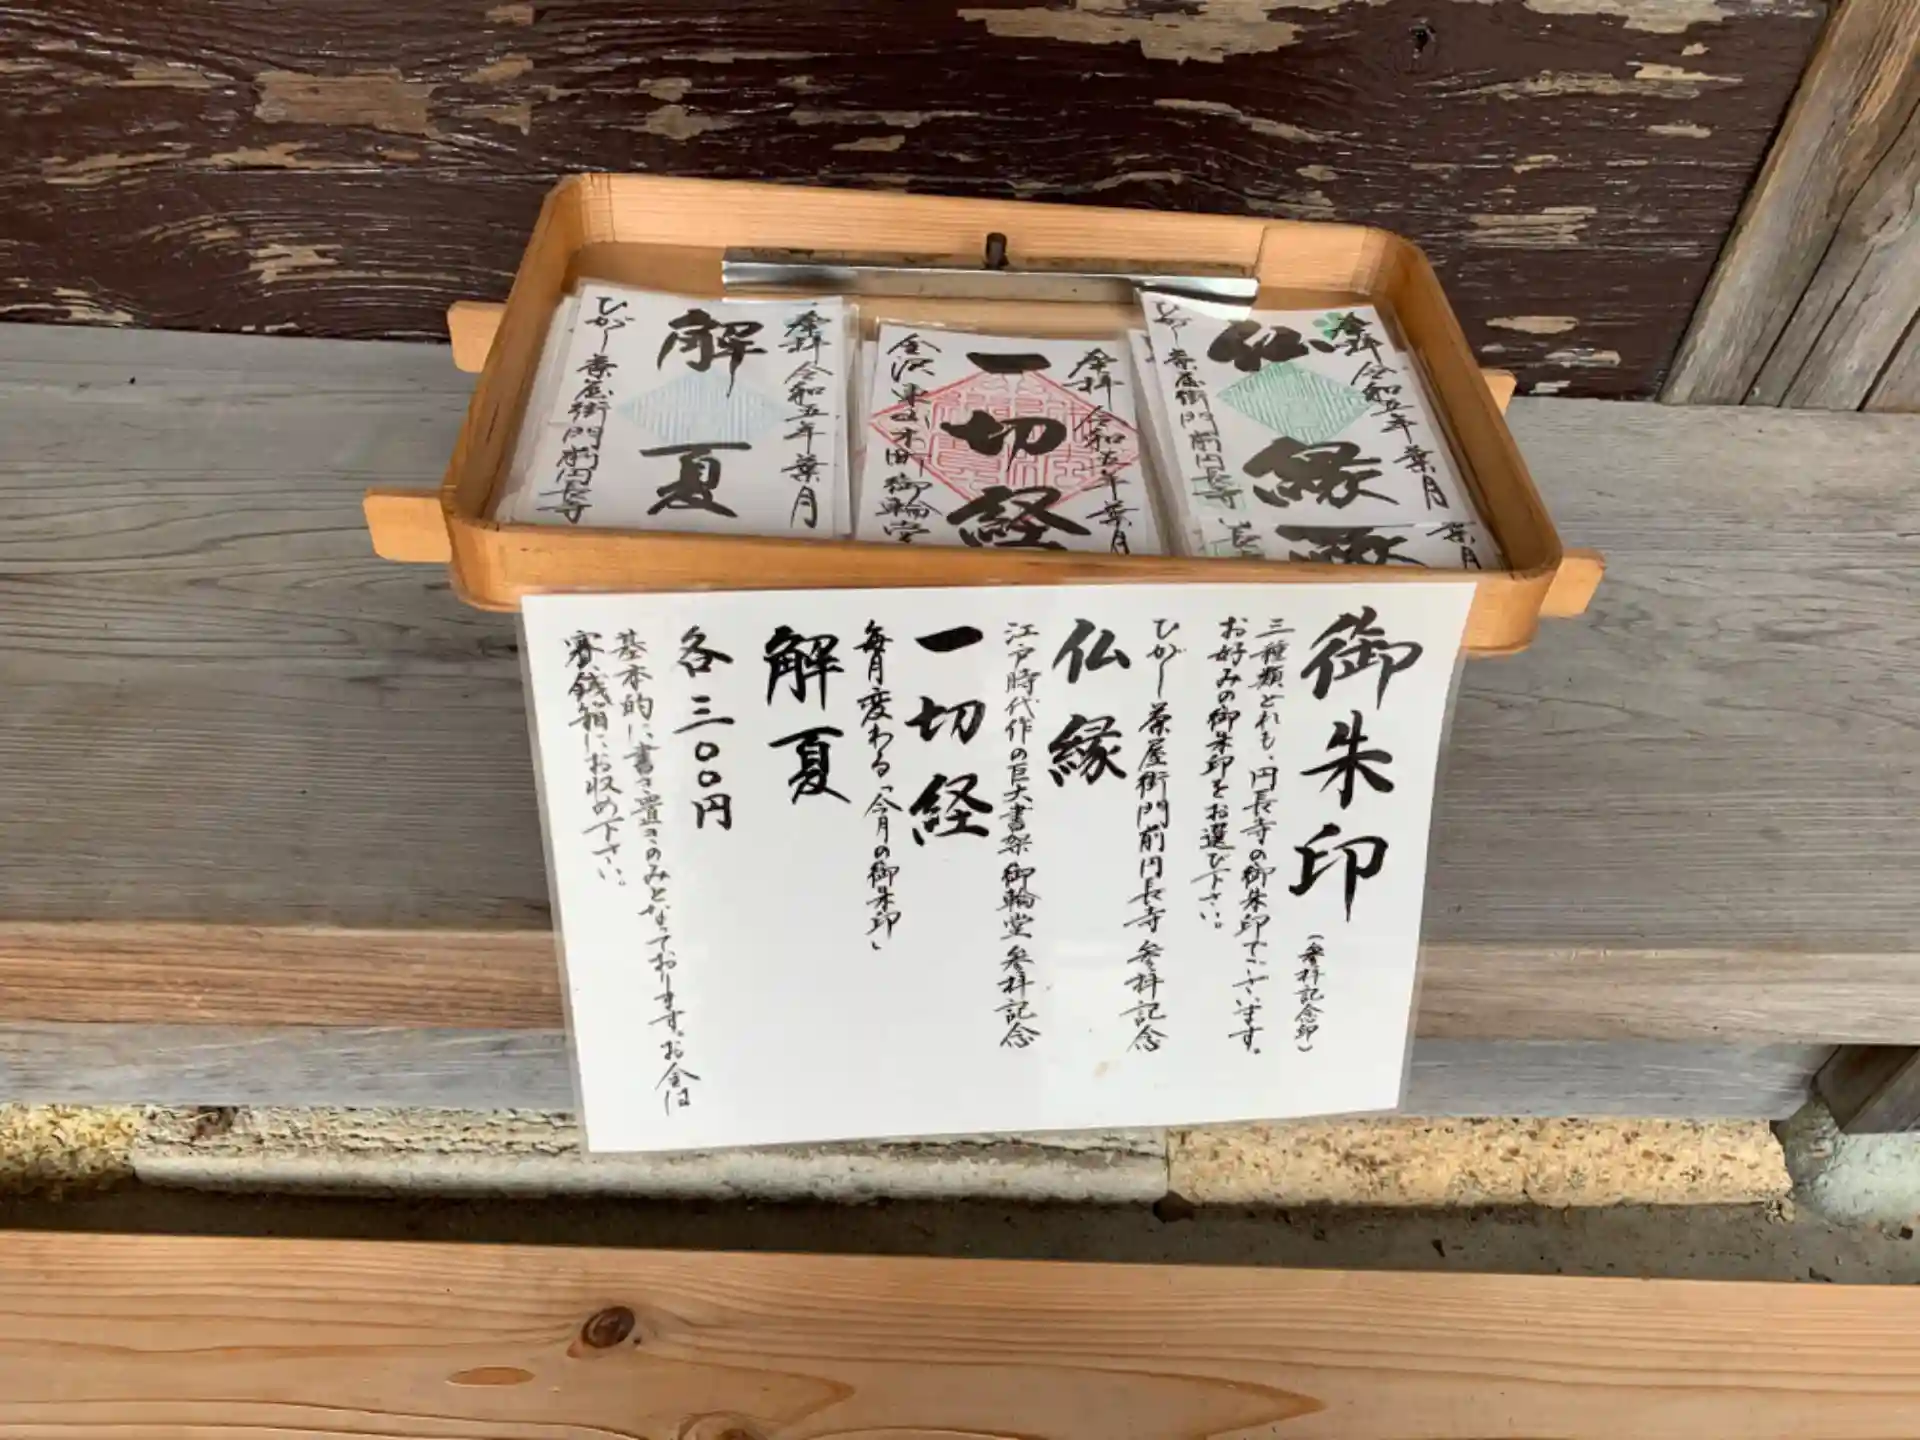 解夏
奉拝 令和五年 葉月
ひがし茶屋街門前円長寺
一切経
奉拝 令和五年 葉月
金沢
御輪堂
仏縁
奉拝 令和五年 葉月
ひがし茶屋街門前円長寺
葉月
御朱印(参拝記念印)
三種類どれも、円長寺の御朱印でございます。
お好みの御朱印をお選び下さい。
ひがし茶屋街門前円長寺 参拝記念
仏縁
江戸時代作の巨大書架 御輪堂 参拝記念
一切経
毎月変わる「今月の御朱印」
解夏
各三〇〇円
基本的に書き置きのみとなっております。お金は
賽銭箱にお収め下さい。